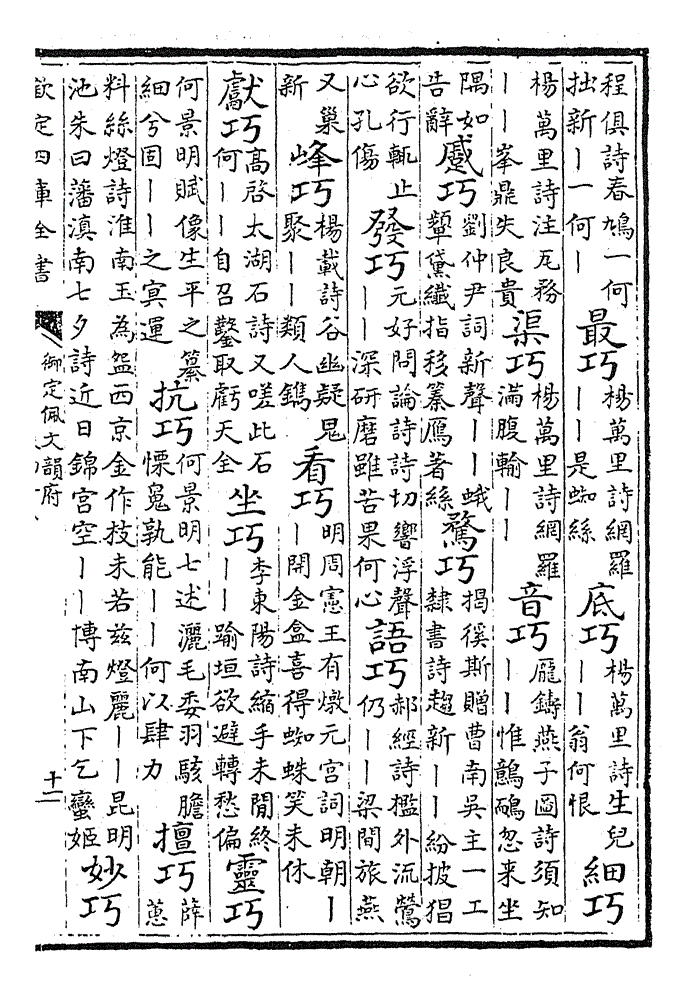 程俱詩春鳩一何
拙新丨一何丨
最巧
楊萬里詩網羅
丨丨是蜘絲
底巧
楊萬里詩生兒
丨丨翁何恨
細巧
楊萬里詩注瓦務
丨丨峯鼎失良貴
渠巧
楊萬里詩網羅
滿腹輸丨丨
音巧
龎鑄燕子圖詩須知
丨丨惟鷾鴯忽來坐
隅如
告辭
蹙巧
劉仲尹詞新聲丨丨蛾
顰黛纖指移纂鴈著絲
騖巧
揭徯斯贈曹南吳主一工
隸書詩趨新丨丨紛披猖
欲行輒止
心孔傷
發巧
元好問論詩詩切響浮聲
丨丨深研磨雖苦果何心
語巧
郝經詩檻外流鶯
仍丨丨梁間旅燕
又巢
新
峰巧
楊載詩谷幽疑鬼
聚丨丨類人鐫
看巧
明周憲王有燉元宮詞明朝丨
丨開金盒喜得蜘蛛笑未休
獻巧
高啓太湖石詩又嗟此石
何丨丨自召鑿取虧天全
坐巧
李東陽詩縮手未閒終
丨丨踰垣欲避轉愁偏
靈巧
何景明賦像生平之纂
細兮固丨丨之㝠運
抗巧
何景明七述灑毛委羽駭膽
慄䰟孰能丨丨何以肆力
擅巧
薛
蕙
料絲燈詩淮南玉為盌西京金作技未若兹燈麗丨丨昆明
池朱曰藩滇南七夕詩近日錦宮空丨丨博南山下乞蠻姬
妙巧
欽定四庫全書
御定佩文韻府
十二